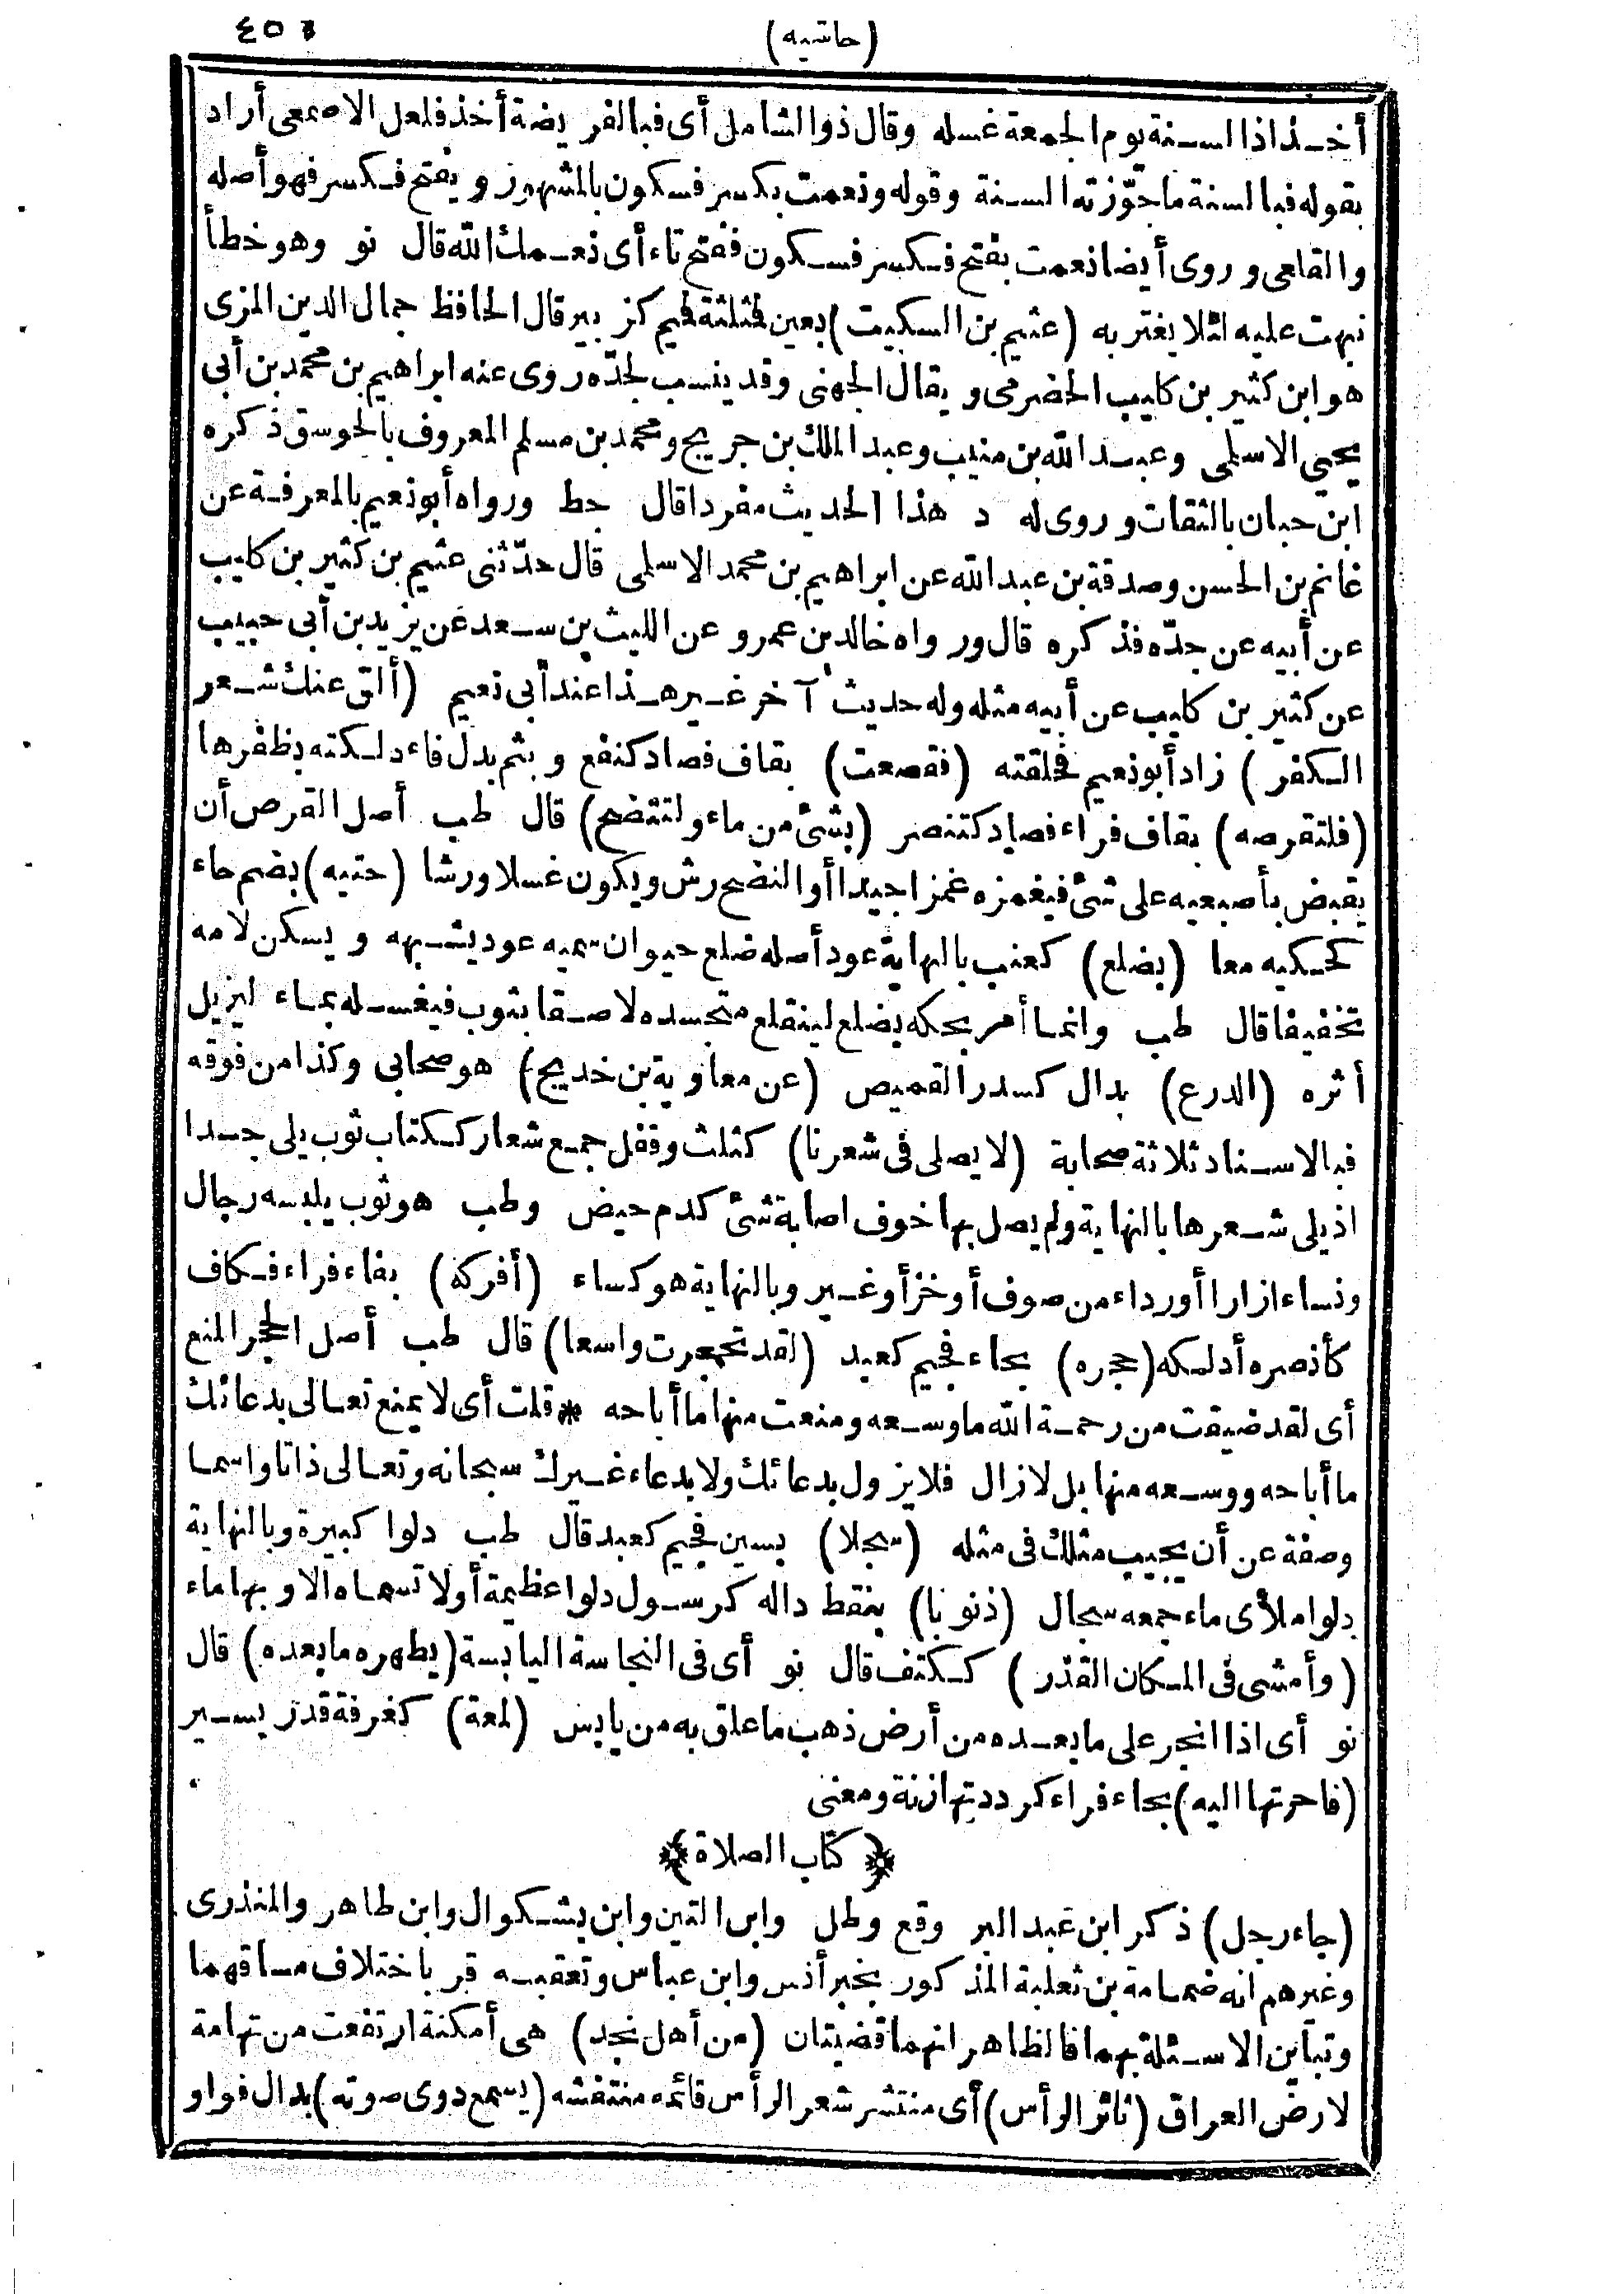 (حاشيه)
أخذ اذا السنة يوم الجمعة غسله وقال ذو الشامل أى فبالفريضة أخذ فلعل الاصمعى أراد
بقوله فبا السنة ما جوّزته السنة وقوله ونعمت بكسر فسكون بالمشهور ويفتح فكسر فهو أصله
والقاعى وروى أيضا نعمت بفتح فكسر فسكون ففتح تاء أى نعمك الله قال نو وهو خطأ
نبهت عليه لئلا يغتر به (عثيم بن السكيت) بعين فمثلثة فميم كزبير قال الحافظ جمال الدين المزى
هو ابن كثير بن كليب الحضرمى ويقال الجهنى وقد ينسب لجدّه روى عنه ابراهيم بن محمد بن أبى
يحيى الاسلمى وعبد الله بن منيب وعبد الملك بن جريج ومحمد بن مسلم المعروف بالجوسق ذكره
ابن حبان بالثقات وروى له د هذا الحديث مفردا قال حط ورواه أبو نعيم بالمعرفة عن
غانم بن الحسن وصدقة بن عبد الله عن ابراهيم بن محمد الاسلمى قال حدّثنى عثيم بن كثير بن كليب
عن أبيه عن جدّه فذكره قال ورواه خالد بن عمرو عن الليث بن سعد عن يزيد بن أبى حبيب
عن كثير بن كليب عن أبيه مثله وله حديث آخر غير هذا عند أبى نعيم (ألق عنك شعر
الكفر) زاد أبو نعيم فحلقته (فقصعت) بقاف فصاد كنفع وبثم بدل فاء دلكته بظفرها
(فلتقرصه) بقاف فراء فصاد كتنصر (بشئ من ماء ولتنضح) قال طب أصل القرص أن
يقبض بأصبعيه على شئ فيغمزه غمزا جيدا أو النضح رش ويكون غسلا ورشا (حتيه) بضم حاء
كحكيه معا (بضلع) كعنب بالنهاية عود أصله ضلع حيوان سميه عود يشبهه ويسكن لامه
تخفيفا قال طب وانما أمر بحكه بضلع لينقلع متجسده لاصقا بثوب فيغسله بماء ليزيل
أثره (الدرع) بدال كسدر القميص (عن معاوية بن خديج) هو صحابى وكذا من فوقه
فبالاسناد ثلاثة صحابة (لا يصلى فى شعرنا) كثلث وقفل جمع شعار ككتاب ثوب يلى جسدا
اذ يلى شعرها بالنهاية ولم يصل بها خوف اصابة شئ كدم حيض وطب هو ثوب يلبسه رجال
ونساء ازارا أو رداء من صوف أو خز أو غير وبالنهاية هو كساء (أفركه) بفاء فراء فكاف
كأنصره أدلكه (حجره) بحاء فجيم كعبد (لقد تحجرت واسعا) قال طب أصل الحجر المنع
أى لقد ضيقت من رحمة الله ما وسعه ومنعت منها ما أباحه * قلت أى لا يمنع تعالى بدعائك
ما أباحه ووسعه منها بل لا زال فلا يزول بدعائك ولا بدعاء غيرك سبحانه وتعالى ذاتا واسما
وصفة عن أن يجيب مثلك فى مثله (سجلا) بسين فجيم كعبد قال طب دلوا كبيرة وبالنهاية
دلوا ملأى ماء جمعه سجال (ذنوبا) بنقط داله كرسول دلوا عظيمة أولا تسماه الا وبها ماء
(وأمشى فى المكان القذر) ككتف قال نو أى فى النجاسة اليابسة (يطهره ما بعده) قال
نو أى اذا انجر على ما بعده من أرض ذهب ما علق به من يابس (لمعة) كغرفة قدر يسير
(فاحرتها اليه) بحاء فراء كرددتها زنة ومعنى
﴿كتاب الصلاة﴾
(جاء رجل) ذكر ابن عبد البر وقع وطل وابن التين وابن بشكوال وابن طاهر والمنذرى
وغيرهم انه ضمامة بن ثعلبة المذكور بخبر أنس وابن عباس وتعقبه قر باختلاف مساقهما
وتباين الاسئلة بهما فالظاهر انهما قضيتان (من أهل نجد) هى أمكنة ارتفعت من تهامة
لارض العراق (ثائر الرأس) أى منتشر شعر الرأس قائمه منتفشه (يسمع دوى صوته) بدال فواو